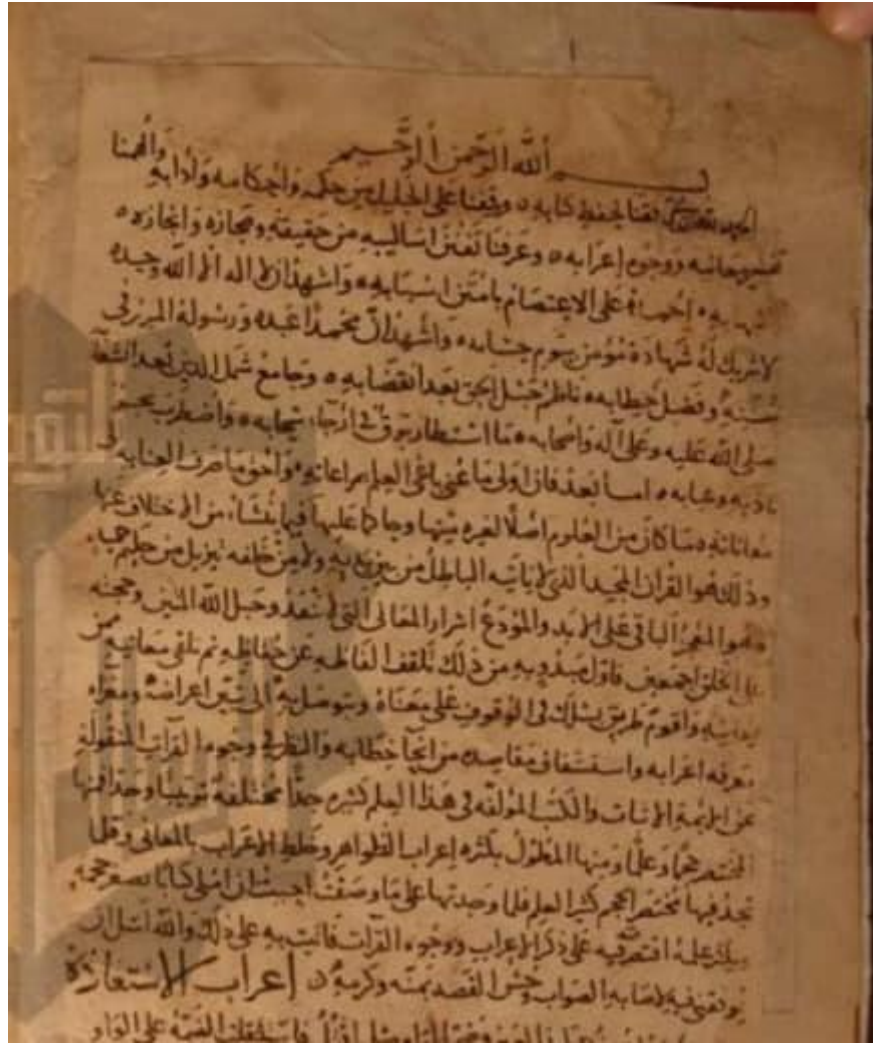 بسم الله الرحمن الرحيم
الحمد لله الذي وفقنا لحفظ كتابه ووقفنا على الجليل من حكمه وأحكامه وآدابه وألهمنا
تفسير معانيه ووجوه إعرابه وعرفنا تفنن أساليبه من حقيقته ومجازه وإيجازه
أحمده على الاعتصام بأمتن أسبابه وأشهد أن لا اله الا الله وحده
لا شريك له شهادة مؤمن بيوم حسابه وأشهد أن محمدا عبده ورسوله المبرز في
لسنه وفصل خطابه ناظم حبل الحق بعد انقضابه وجامع شمل الدين بعد انشعابه
صلى الله عليه وعلى آله وأصحابه ما استطار برق في أرجاء سحابه واضطرب بحر
بآذيه وعبابه أما بعد فان أولى ما عني باغي العلم بمراعاته وأحق ما صرف العناية إلى
معاناته ما كان من العلوم أصلا لغيره منها وحاكما عليها فيما ينشأ من الاختلاف عنها
وذلك هو القرآن المجيد الذي لا يأتيه الباطل من بين يديه ولا من خلفه تنزيل من حكيم حميد
وهو المعجز الباقي على الابد والمودع أسرار المعاني التي لا تنفد وحبل الله المتين وحجته
على الخلق أجمعين فأول مبدوء به من ذلك تلقف ألفاظه عن حفاظه ثم تلقي معانيه ممن
يعانيه وأقوم طريق يسلك في الوقوف على معناه ويتوصل به الى تبيين أغراضه ومغزاه
معرفة إعرابه واستشفاف مقاصده من أنحاء خطابه والنظر في وجوه القرآت المنقولة
عن الايمة الاثبات والكتب المولفه في هذا العلم كثيره جدا مختلفة ترتيبا وحدا فمنها
المختصر حجما وعلما ومنها المطول بكثره إعراب الظواهر وخلط الاعراب بالمعاني وقلما
تجد فيها مختصر الحجم كثير العلم فلما وجدتها على ما وصفت أحببت أن أملي كتابا يصغر حجمه
ويكثر علمه أقتصر فيه على ذكر الاعراب ووجوه القرآت فأتيت به على ذلك والله أسأل ان
يوفقني فيه لاصابة الصواب وحسن القصد بمنه وكرمه إعراب الاستعاذة